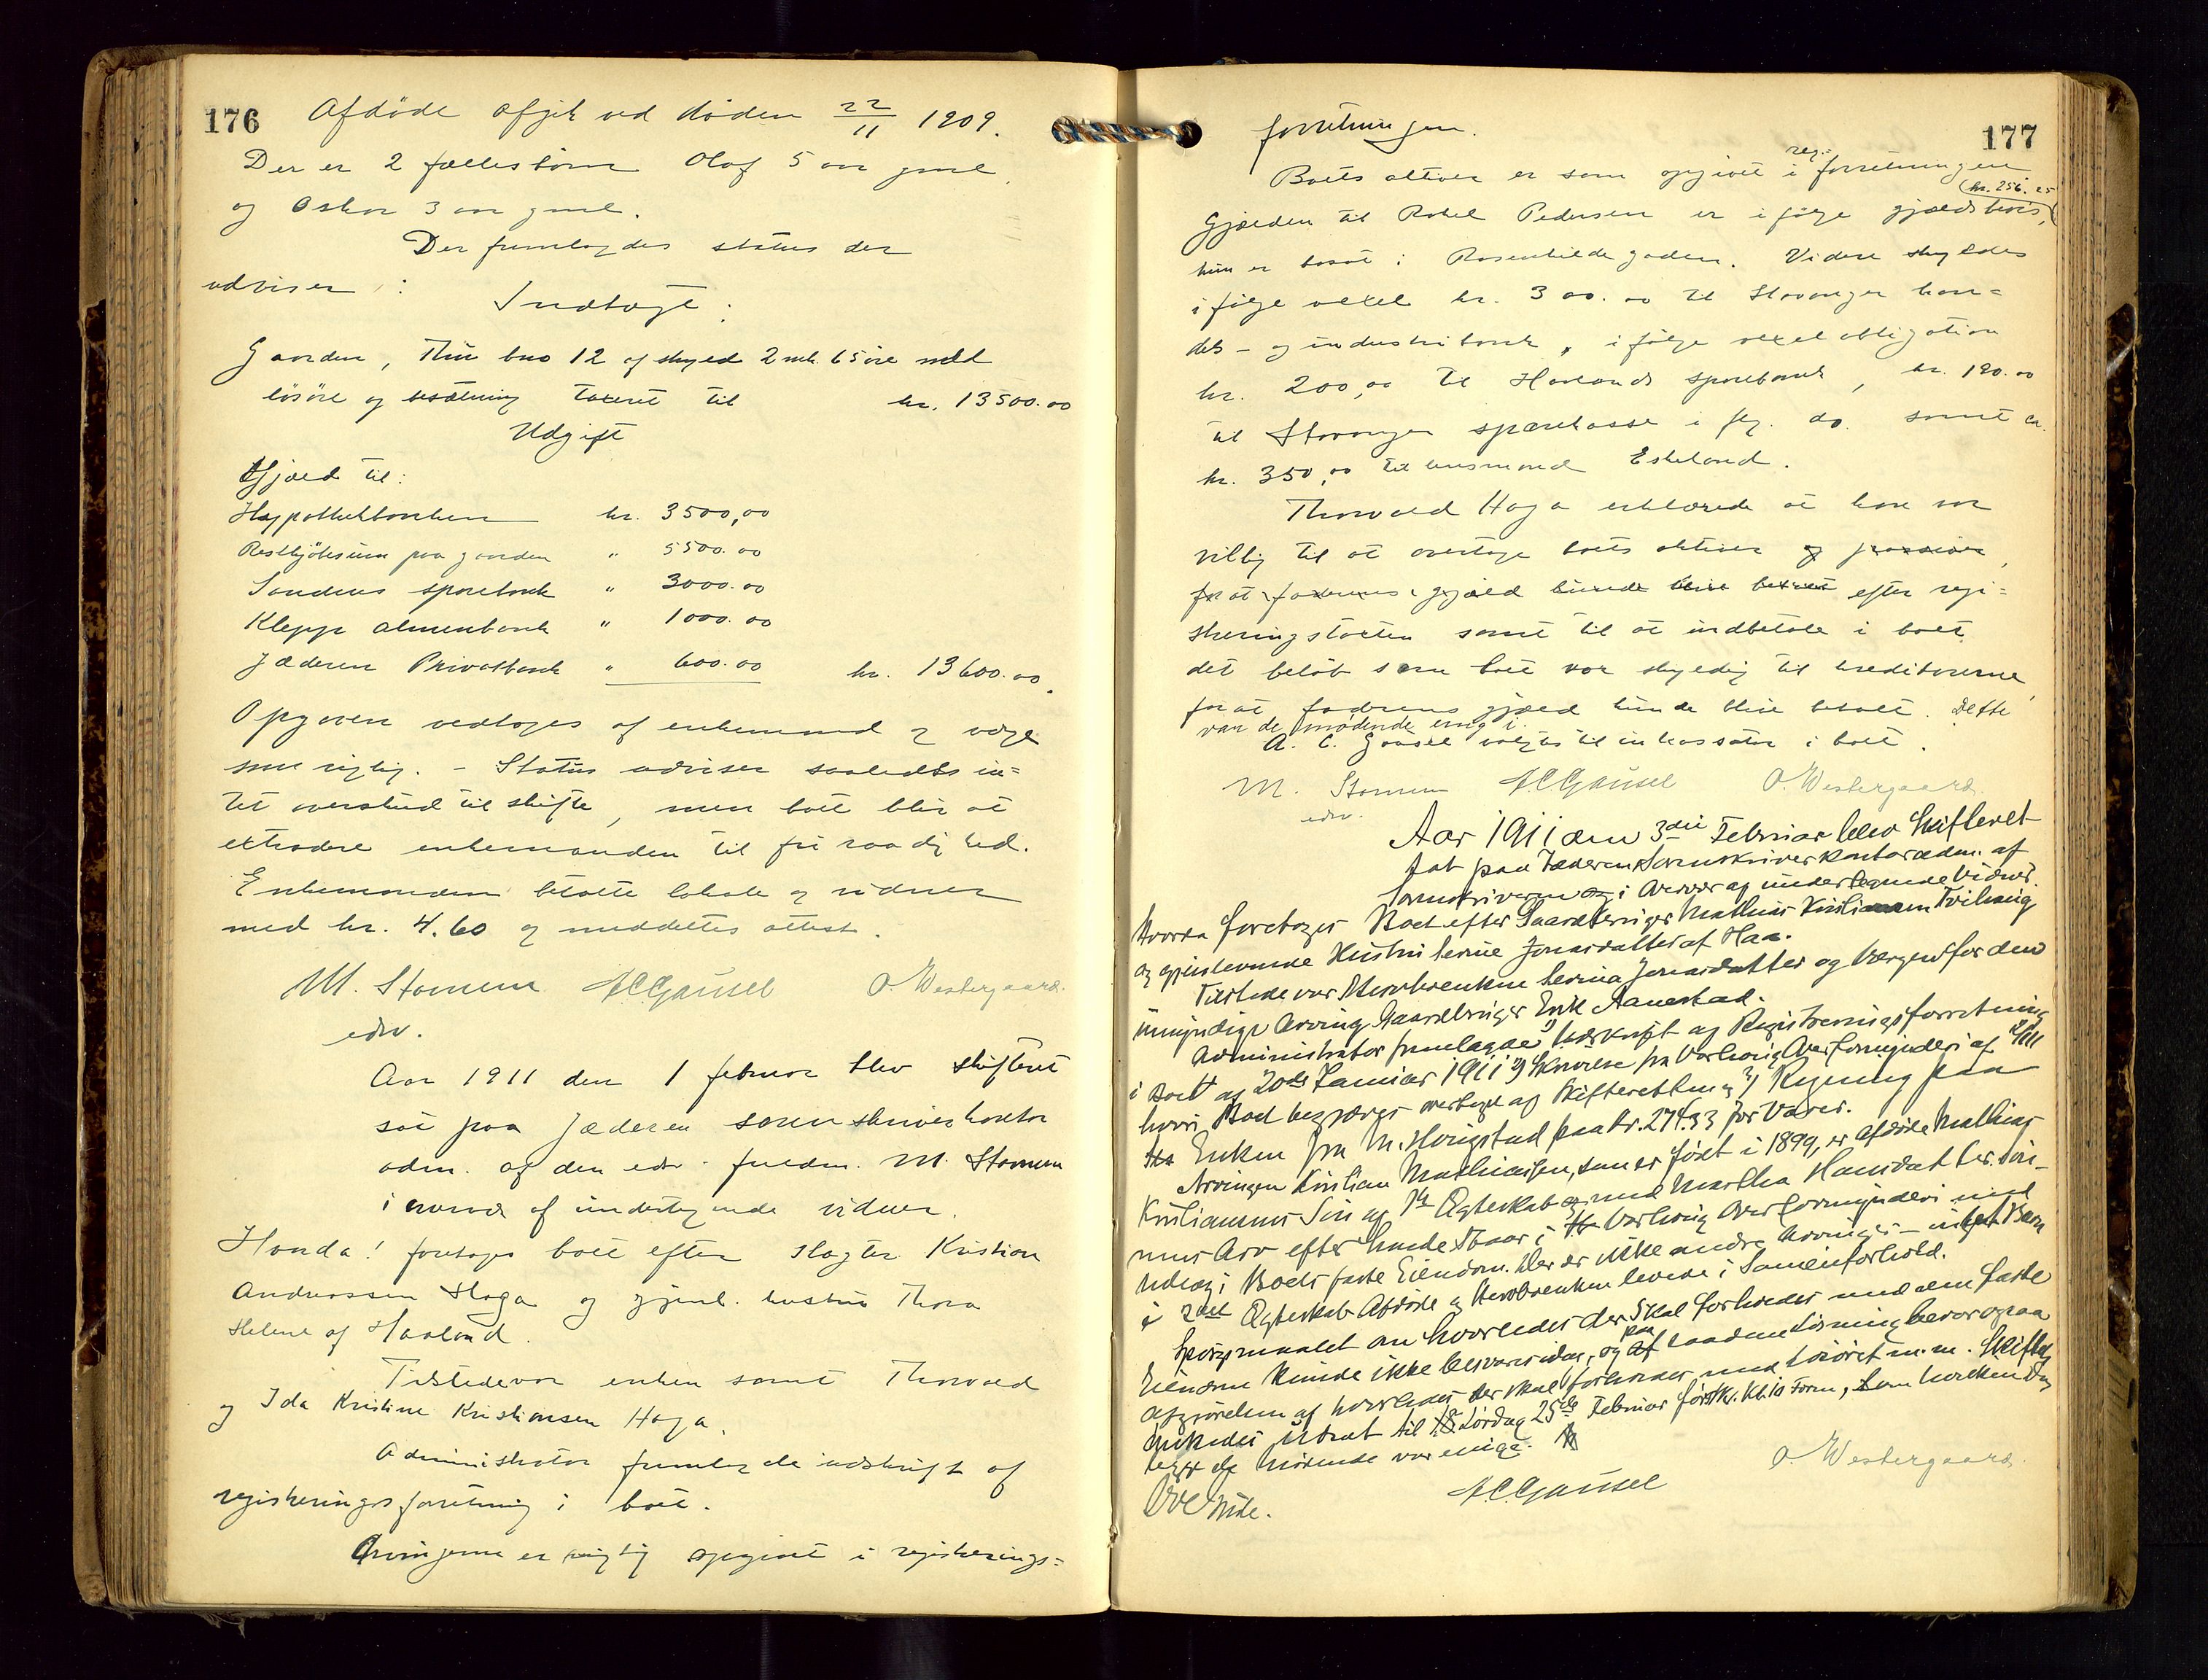 176
Afdöde afgik ved döden 22/11 1909.
Der er 2 fællesbörn Olaf 5 aar gml.
og Oskar 3 aar gml.
Der fremlagdes status der
udviser:
Indtægt:
Gaarden, Thu bno 12 af skyld 2 mk. 65 öre med
lösöre og besætning taxeret til kr. 13500.00
Udgift
Gjæld til:
Hypothekbanken kr. 3500,00
Restkjöbesum paa gaarden " 5500.00
Sandnes sparebank " 3000.00
Klepp almenbank " 1000.00
Jæderen Privatbank " 600.00 kr. 13600.00.
Opgaven vedtages af enkemand og værge
som rigtig. - Status udviser saaledes in=
tet overskud til skifte, men boet blir at
extradere enkemanden til fri raadighed.
Enkemanden betalte lokale og vidner
med kr. 4.60 og meddeltes attest.
M. Stamnes A.C. Gausel O. Westergaard.
edsv.
Aar 1911 den 1 februar blev skifteret
sat paa Jæderen sorenskriverkontor
adm. af den edsv. fuldm. M. Stamnes
i overvær af undertegnede vidner.
Hvorda! foretages boet efter slagter Kristian
Andreassen Haga og gjenl. hustru Thora
Helene af Haaland.
Tilstede var enken samt Thorvald
og Ida Kristine Kristiansen Haga.
Administrator fremlagde udskrift af
registreringsforretning i boet.
Arvingerne er rigtig opgivet i registrerings=
177
forretningen.
Boets aktiver er som opgivet i reg: forretningen
(kr. 256.25)
Gjælden til Rakel Pedersen er ifölge gjældsbevis,
hun er bosat i Rosenkildegaden. Videre skyldes
ifölge vexel kr. 300.00 til Stavanger han=
dels- og industribank, ifölge vexelobligation
kr. 200,00 til Haalands sparebank, kr. 120.00
til Stavanger sparekasse i flg. do. samt ca.
kr. 350,00 til husmand Eskeland.
Thorvald Haga erklærede at han var
villig til at overtage boets aktiver og passiver,
for at faderens gjæld kunde blive betalt efter regi=
streringstaxten samt til at indbetale i boet
det belöb som boet var skyldig til kreditorerne,
for at faderens gjæld kunde blive betalt. Dette
var de mødende enig i.
A. C. Gausel valgtes til inkassator i boet.
M. Stamnes A.C. Gausel O. Westergaard.
edsv.
Aar 1911 den 3die Februar blev Skifteret
sat paa Jæderens Sorenskriverkontor adm. af
Sorenskriveren og i Overvær af undertegnede Vidner.
Hvorda foretages Boet efter Gaardbruger Mathias Kristiansen Tvihaug
og gjenlevende Hustru Serine Jonasdatter af Haa.
Tilstede var Stervboenken Serina Jonasdatter og Værgen for den
umyndige Arving Gaardbruger Erik Aanestad.
Administrator fremlagde 1) Udskrift af Registreringsforretning
i Boet af 20de Januar 1911 2) Skrivelse fra Varhoug Overformynderi af 2/1 11
hvori Boet begjæres overtaget af Skifteretten og 3) Regning paa
Enken fra M. Hovgstad paa Kr. 274.33 for Varer.
Arvingen Kristian Mathiassen, som er født i 1899, er afdøde Mathias
Kristiansens Søn af 1ste Ægteskab med Martha Hansdatter. Søn-
nens Arv efter hende staar i Varhoug Overformynderi med
Udlæg i Boets faste Eiendom. Der er ikke andre Arvinger – intet Barn
i 2det Ægteskab. Afdøde og Stervboenken levede i Sameieforhold.
Spørgsmaalet om hvorledes der skal forholdes med den faste
Eiendom kunde ikke besvares idag, og paa saadan Løsning beror ogsaa
Afgjørelsen af hvorledes der skal forholdes med Løsøret m.m. Skiftet
ønskedes Udsat til Lørdag 25de Februar førstk. Kl. 10 Form, som hvilken Dag
de mødende var enige.
A.C. Gausel O. Westergaard.